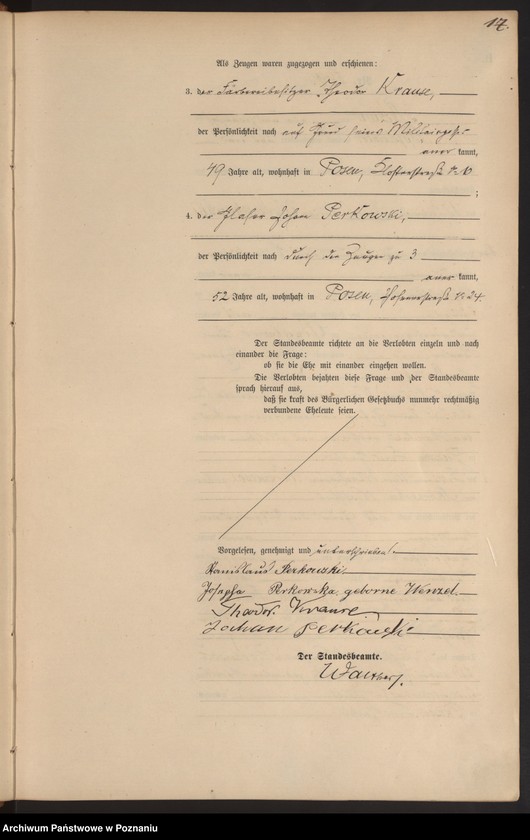 17.
Als Zeugen waren zugezogen und erschienen:
3. der Färbereibesitzer Theodor Krause,
der Persönlichkeit nach auf Grund seines
aner kannt,
49 Jahre alt, wohnhaft in Posen, Klosterstraße
;
4. der Glaser Johan Perkowski,
der Persönlichkeit nach durch den Zeugen zu 3
aner kannt,
52 Jahre alt, wohnhaft in Posen, № 24.
Der Standesbeamte richtete an die Verlobten einzeln und nach
einander die Frage:
ob sie die Ehe mit einander eingehen wollen.
Die Verlobten bejahten diese Frage und der Standesbeamte
sprach hierauf aus,
daß sie kraft des Bürgerlichen Gesetzbuchs nunmehr rechtmäßig
verbundene Eheleute seien.
Vorgelesen, genehmigt und unterschrieben.
Stanislaus Perkowski.
Josepha Perkowska geborne Wenzel.
Theodor Krause
Johan Perkowski
Der Standesbeamte.
Archiwum Państwowe w Poznaniu